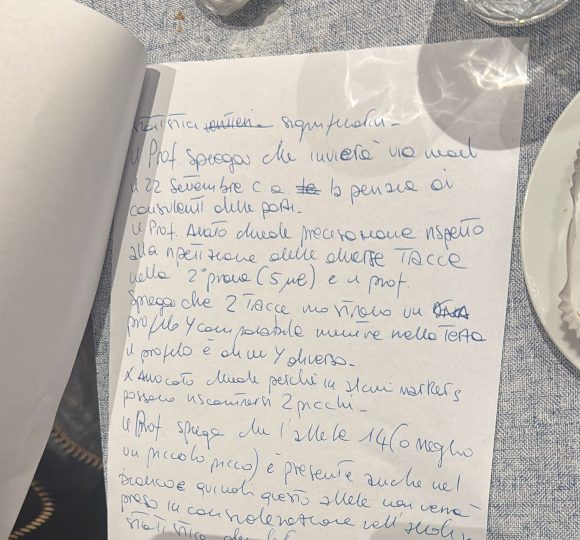 statistica significativ-
il Prof. spiega che invierà via mail
il 22 Settembre c a la perizia ai
consulenti delle parti.
il Prof. chiede precisazione rispetto
alla ripetizione delle diverse TACCE
nella 2° prova (5 µl) e il prof.
spiega che 2 TACCE mostrano un
profilo Y compatibile mentre nella Terza
il profilo è di un Y diverso.
chiede perché in alcuni markers
possano riscontrarsi 2 picchi.
il Prof. spiega che l'allele 14 (o meglio
un piccolo picco) è presente anche nel
bianco e quindi questo allele non verrà
preso in considerazione nell'
statistica